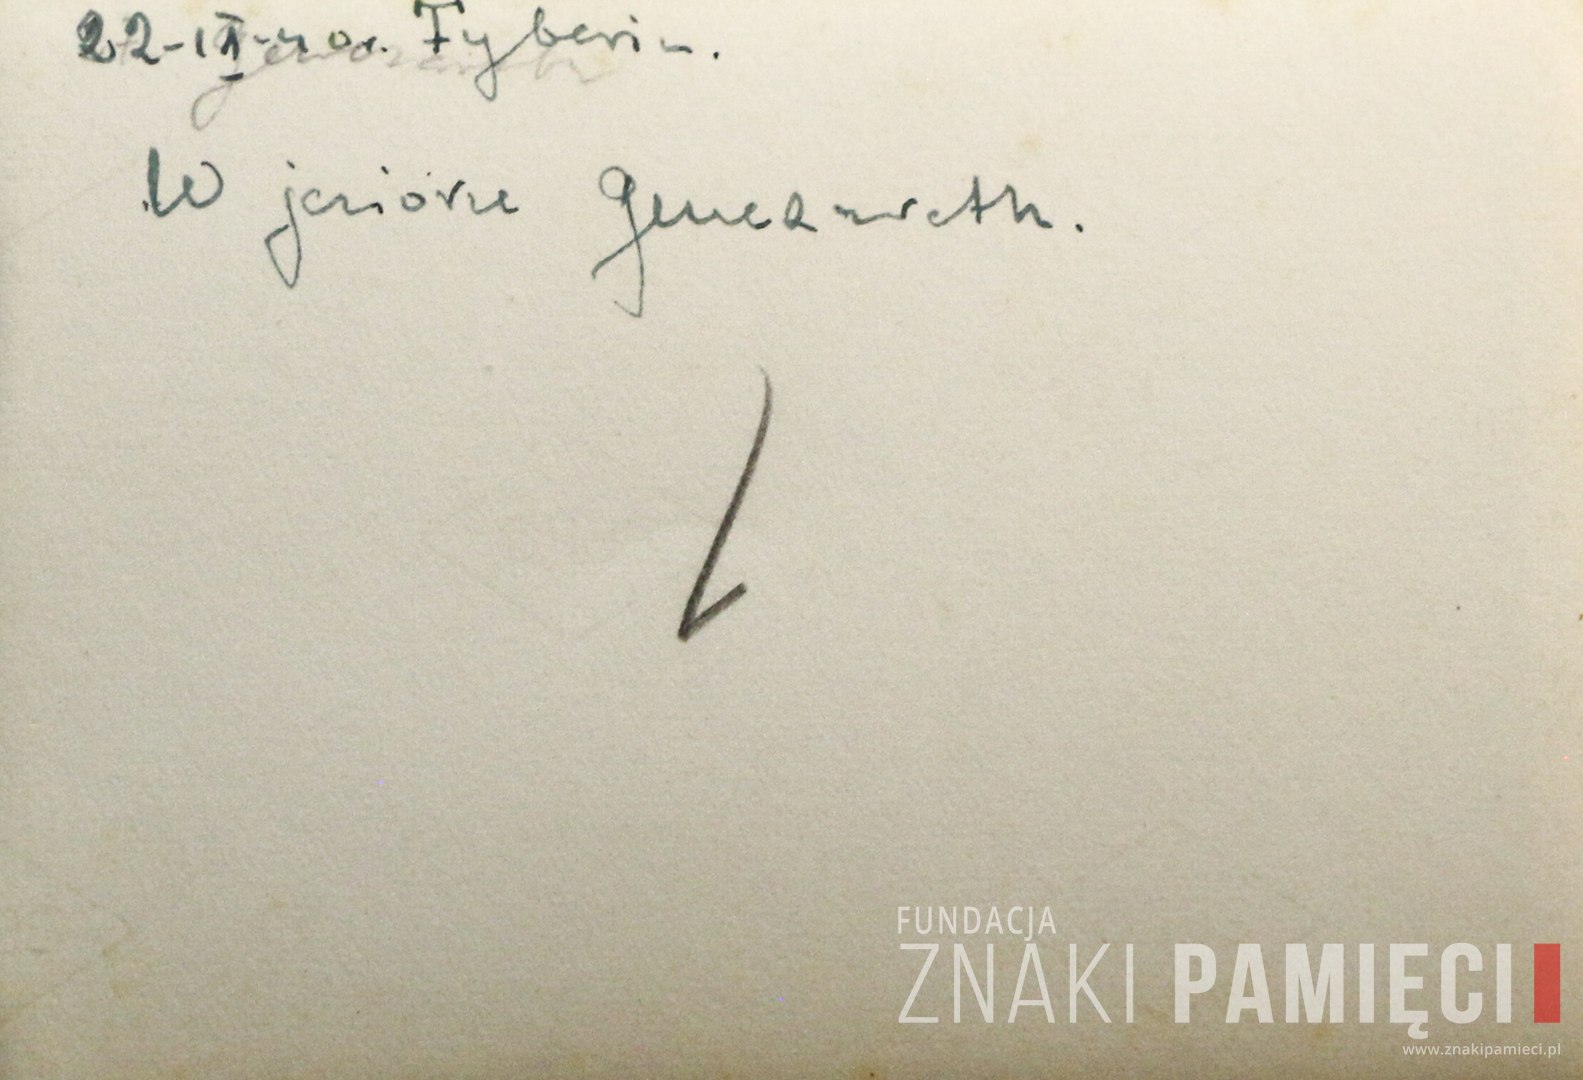 22-II-40r. Tyberin.
W jeziorze Genezareth.
FUNDACJA
ZNAKI PAMIĘCI
www.znakipamieci.pl